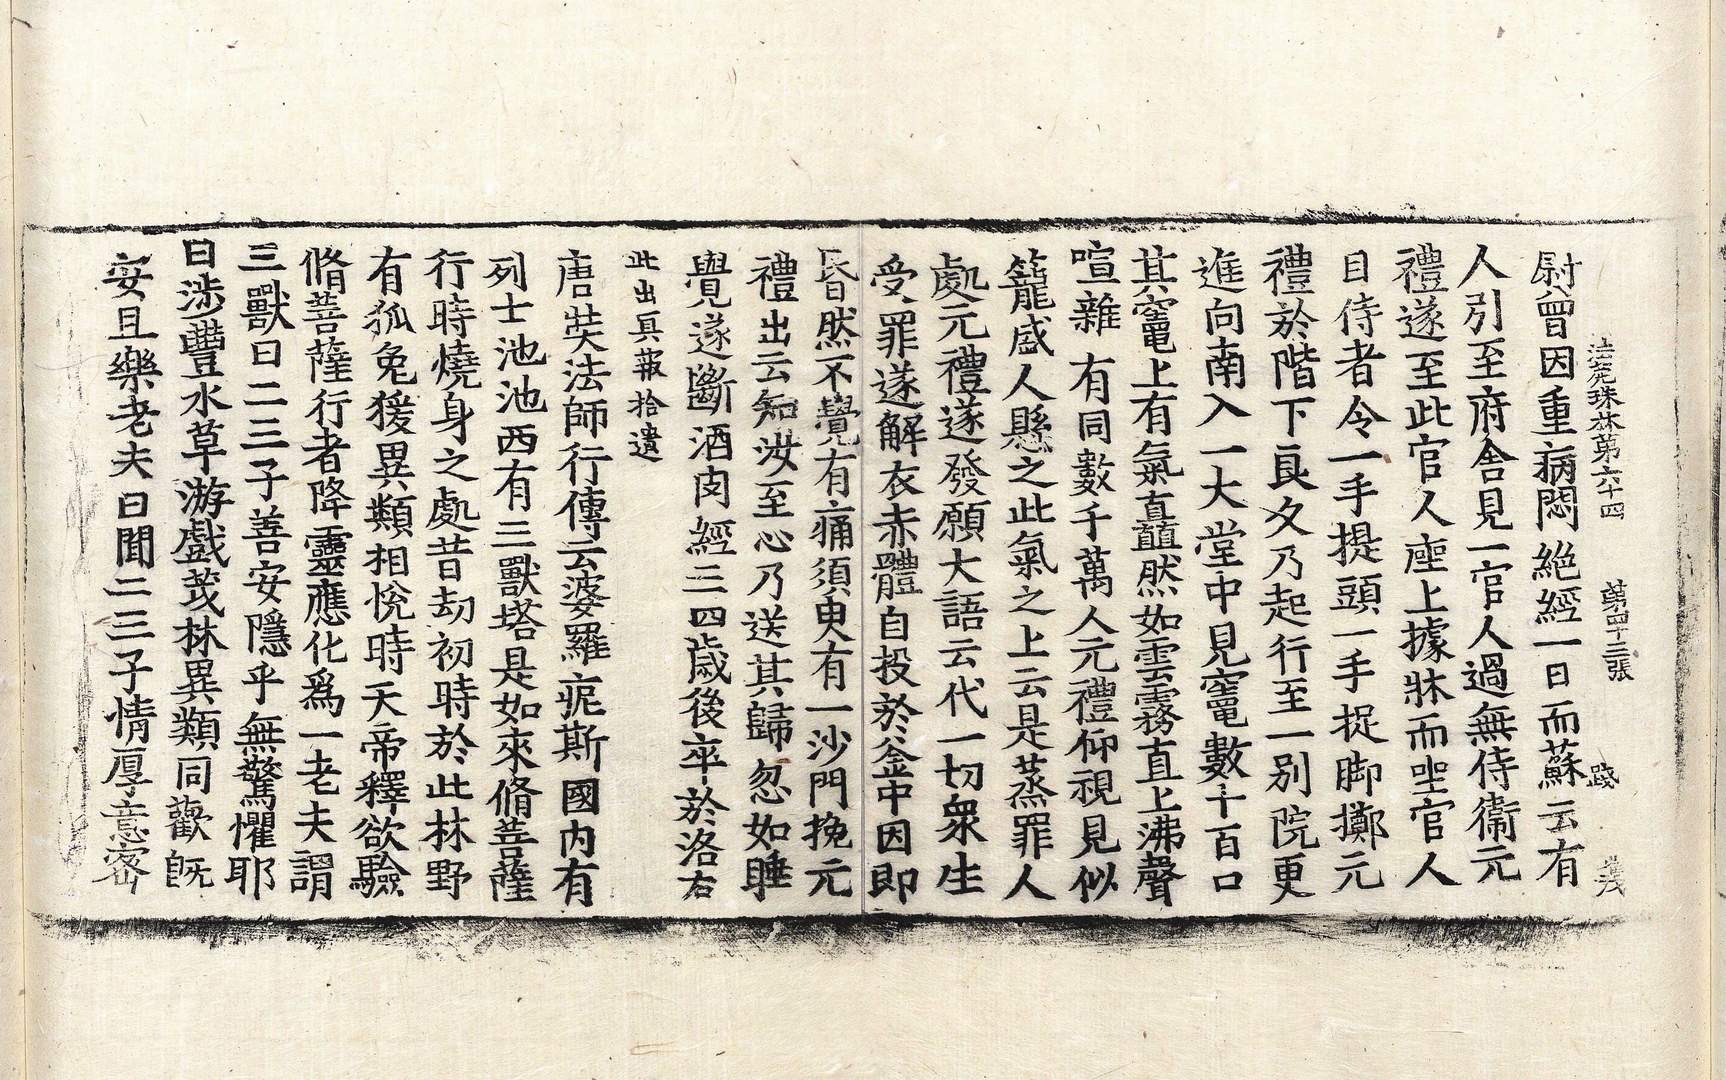 法苑珠林第六十四 第四十三張 踐 茂
尉曾因重病悶絕經一日而蘇云有
人引至府舍見一官人過無侍衛元
禮遂至此官人座上據牀而坐官人
目侍者令一手提頭一手捉脚擲元
禮於階下良久乃起行至一别院更
進向南入一大堂中見竈數十百口
其竈上有氣直矗然如雲霧直上沸聲
喧雜有同數千萬人元禮仰視見似
籠盛人懸之此氣之上云是蒸罪人
處元禮遂發願大語云代一切衆生
受罪遂解衣赤體自投於釜中因即
昏然不覺有痛須臾有一沙門挽元
禮出云知汝至心乃送其歸忽如睡
覺遂斷酒肉經三四歲後卒於洛右
此出冥報拾遺
唐奘法師行傳云婆羅痆斯國内有
列士池池西有三獸塔是如來脩菩薩
行時燒身之處昔劫初時於此林野
有狐兔猨異類相悅時天帝釋欲驗
脩菩薩行者降靈應化爲一老夫謂
三獸曰二三子善安隱乎無驚懼耶
曰涉豐水草游戲茂林異類同歡既
安且樂老夫曰聞二三子情厚意密